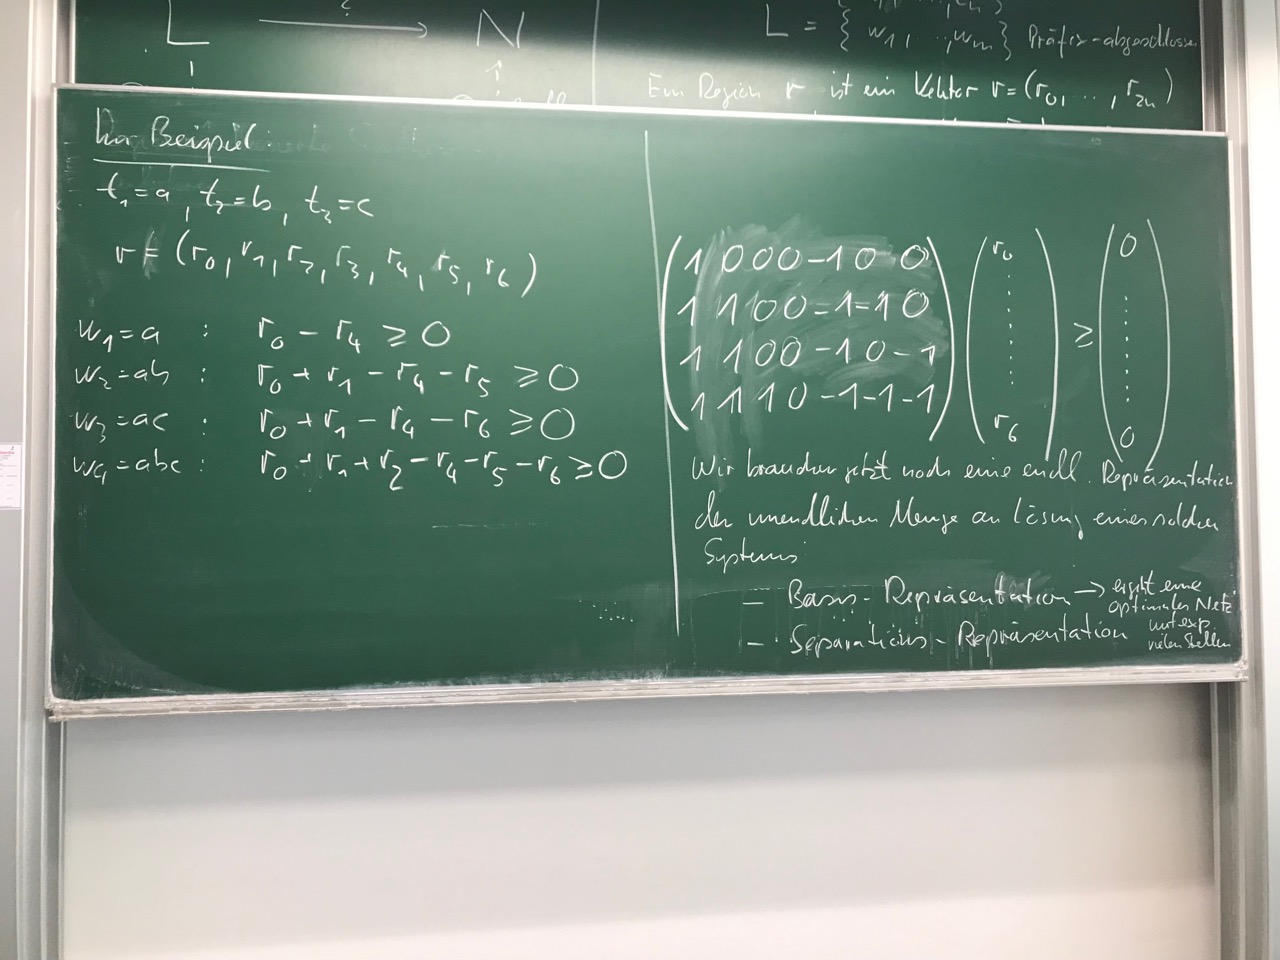 L → N
L = {
w1, ..., wm} Präfix-abgeschlossen
Ein Region r ist ein Vektor r = (r0, ..., r2n)
Beispiel:
t1 = a, t2 = b, t3 = c
r = (r0, r1, r2, r3, r4, r5, r6)
w1 = a : r0 - r4 ≥ 0
w2 = ab : r0 + r1 - r4 - r5 ≥ 0
w3 = ac : r0 + r1 - r4 - r6 ≥ 0
w4 = abc : r0 + r1 + r2 - r4 - r5 - r6 ≥ 0
1 0 0 0 -1 0 0 r0 0
1 1 0 0 -1 -1 0 ⋮ ≥ ⋮
1 1 0 0 -1 0 -1
1 1 1 0 -1 -1 -1 r6 0
Wir brauchen jetzt noch eine endl. Repräsentation
der unendlichen Menge an Lösung eines solchen
Systems
- Basis-Repräsentation → ergibt eine
optimales Netz
mit exp.
vielen Stellen
- Separations-Repräsentation